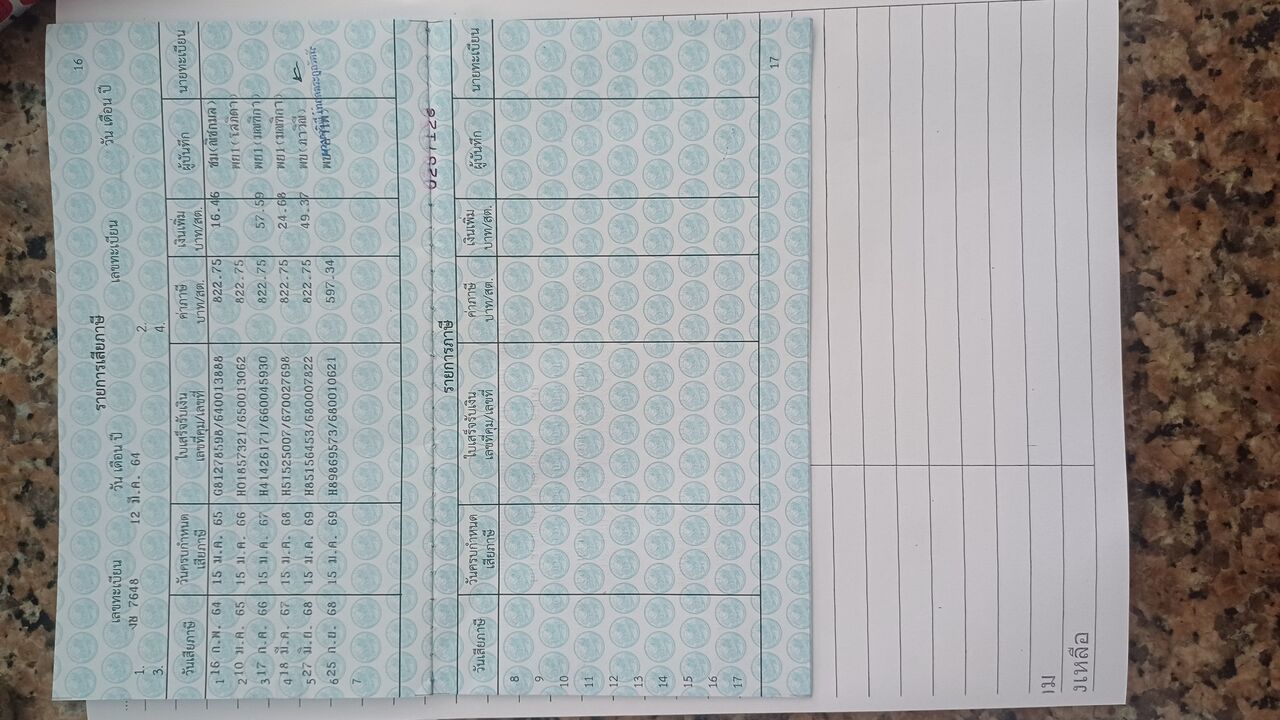 16
รายการเสียภาษี
เลขทะเบียน วัน เดือน ปี เลขทะเบียน วัน เดือน ปี
1. งษ 7648 12 มี.ค. 64 2.
3. 4.
วันเสียภาษี วันครบกำหนดเสียภาษี ใบเสร็จรับเงิน เลขที่คุม/เลขที่ ค่าภาษี บาท/สต. เงินเพิ่ม บาท/สต. ผู้บันทึก นายทะเบียน
1 16 ก.พ. 64 15 ม.ค. 65 G81278598/640013888 822.75 16.46
2 10 ม.ค. 65 15 ม.ค. 66 H01857321/650013062 822.75 พยา(โสภิดา)
3 17 ก.ค. 66 15 ม.ค. 67 H41426171/660045930 822.75 57.59 พยา(มณฑิกา)
4 18 มี.ค. 67 15 ม.ค. 68 H51525007/670027698 822.75 24.68 พยา(มณฑิกา)
5 27 มิ.ย. 68 15 ม.ค. 69 H85156453/680007822 822.75 49.37 พข(ภาวิณี)
6 25 ก.ย. 68 15 ม.ค. 69 H89869573/680010621 597.34
7
รายการภาษี
วันเสียภาษี วันครบกำหนดเสียภาษี ใบเสร็จรับเงิน เลขที่คุม/เลขที่ ค่าภาษี บาท/สต. เงินเพิ่ม บาท/สต. ผู้บันทึก นายทะเบียน
8
9
10
11
12
13
14
15
16
17
17
งเหลือ